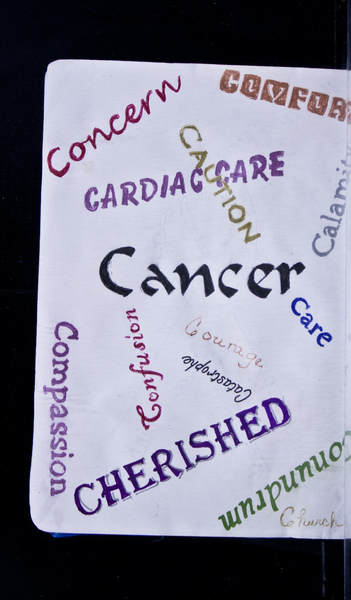 Concern
COMFOR
CAUTION
CARDIAC CARE
Calamit
Cancer
Care
Confusion
Courage
Catastrophe
Compassion
CHERISHED
Conundrum
Church